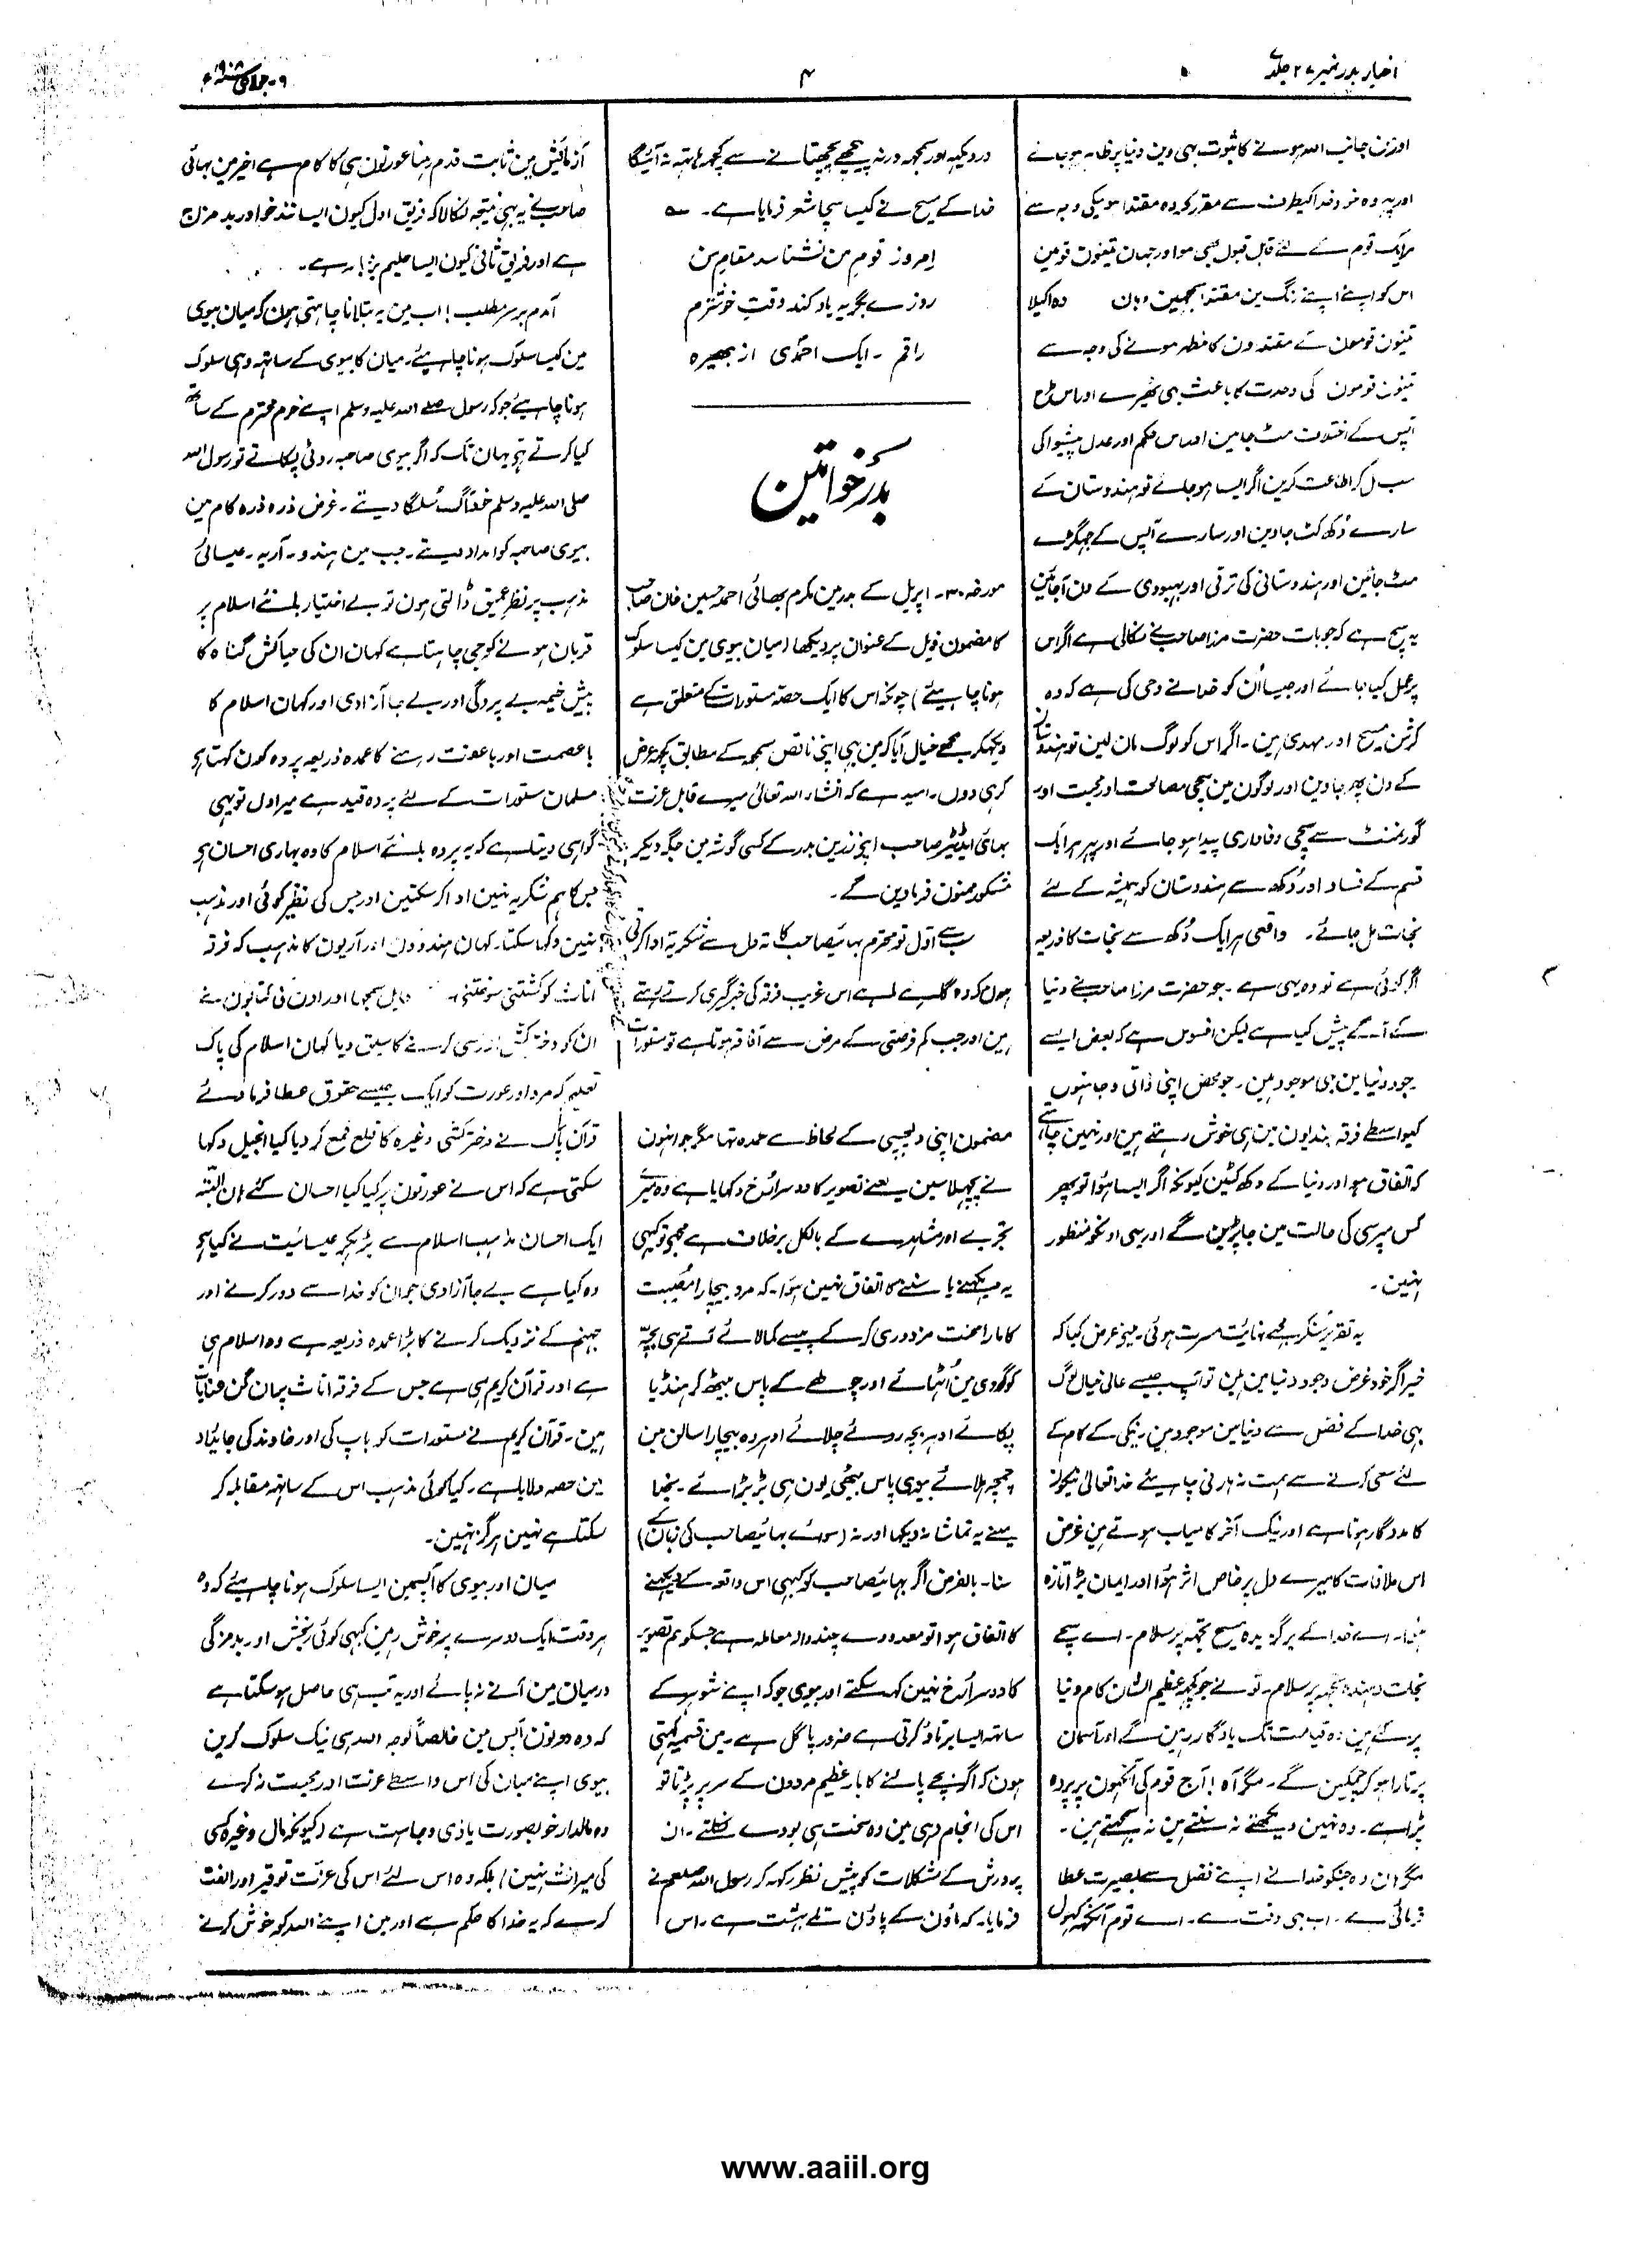 اخبار بدر نمبر ۲۷ جلد ۷
۴
۹ - جولائی ۱۹۰۸ء
اور من جانب اللہ ہونے کا ثبوت بھی دین دنیا پر ظاہر ہو جائے
اور پہر وہ خود خدا کیطرف سے مقرر کردہ مقتدا ہونیکی وجہ سے
ہر ایک قوم کے لئے قابل قبول بھی ہو اور جہان تینون قومین
اس کو اپنے اپنے رنگ مین مقتدا سمجھین وہان وہ اکیلا
تینون قومون کے مقتدون کا مظہر ہونے کی وجہ سے
تینون قومون کی وحدت کا باعث بھی ٹھیرے اور اس طرح
آپس کے اختلاف مٹ جاوین اور اس حکم اور عدل پیشوا کی
سب مل کر اطاعت کرین اگر ایسا ہو جائے تو ہندوستان کے
سارے دُکھ کٹ جاوین اور سارے آپس کے جھگڑے
مٹ جائین اور ہندوستانی کی ترقی اور بہبودی کے دن آجائین
یہ سچ ہے کہ جو بات حضرت مرزا صاحب نے نکالی ہے اگر اس
پر عمل کیا جائے اور جیسا اُن کو خدا نے وحی کی ہے کہ وہ
کرشن مسیح اور مہدی ہین - اگر اس کو لوگ مان لین تو ہندوستان
کے دن پھر جاوین اور لوگون مین سچی مصالحت اور محبت اور
گورنمنٹ سے سچی وفاداری پیدا ہو جائے اور پہر ہر ایک
قسم کے فساد اور دُکھ سے ہندوستان کو ہمیشہ کے لئے
نجات مل جائے - واقعی ہر ایک دُکھ سے نجات کا ذریعہ
اگر کوئی ہے تو وہ یہی ہے - جو حضرت مرزا صاحب نے دنیا
کے آگے پیش کیا ہے لیکن افسوس ہے کہ بعض ایسے
وجود دنیا مین بھی موجود ہین - جو محض اپنی ذاتی وجاہتوں
کیواسطے فرقہ بندیون مین ہی خوش رہتے ہین اور نہین چاہتے
کہ اتفاق ہو اور دنیا کے دکھ کٹین کیونکہ اگر ایسا ہوا تو پھر
کس مپرسی کی حالت مین جا پڑین گے اور یہی اونکو منظور
نہین -
یہ تقریر سنکر مجھے نہایت مسرت ہوئی - مینے عرض کیا کہ
خیر اگر خود غرض وجود دنیا مین ہین تو آپ جیسے عالی خیال لوگ
بھی خدا کے فضل سے دنیا مین موجود ہین - نیکی کے کام کے
لئے سعی کرنے سے ہمت نہ ہارنی چاہیئے خدا تعالیٰ نیکون
کا مددگار ہوتا ہے اور نیک آخر کامیاب ہوتے ہین غرض
اس ملاقات کا میرے دل پر خاص اثر ہوا اور ایمان بڑا تازہ
ہوا - اے خدا کے برگزیدہ مسیح تجھہ پر سلام - اے سچے
نجات دہندہ تجھہ پر سلام - تو نے جو کچہہ عظیم الشان کام دنیا
پر کئے ہین وہ قیامت تک یادگار رہین گے اور آسمان
پر تارا ہو کر چمکین گے - مگر آہ! آج قوم کی آنکھون پر پردہ
پڑا ہے - وہ نہین دیکھتے نہ سنتے ہین نہ سمجہتے ہین -
مگر ان وہ جنکو خدا نے اپنے فضل سے بصیرت عطا
فرمائی ہے - اب ہی وقت ہے - اے قوم آنکھہ کھول
در دیکہہ اور سمجہہ ورنہ پیچھے پچھتانے سے کچھہ ہاتہہ نہ آئیگا
خدا کے مسیح نے کیسا سچا شعر فرمایا ہے -
امروز قوم من نشناسد مقام من
روزے بگریہ یاد کند وقت خوشترم
راقم - ایک احمدی از بھیرہ
بدر خواتین
مورخہ ۳۰ - اپریل کے بدر مین مکرم بھائی احمد حسین خان صاحب
کا مضمون ذیل کے عنوان پر دیکھا (میان بیوی مین کیسا سلوک
ہونا چاہیئے) چونکہ اس کا ایک حصہ مستورات کے متعلق ہے
دیکھکر مجھے خیال آیا کہ مین بھی اپنی ناقص سمجہہ کے مطابق کچھ عرض
کر ہی دون - امید ہے کہ انشاء اللہ تعالیٰ میرے قابل عزت
بھائی ایڈیٹر صاحب اپنے زرین بدر کے کسی گوشہ مین جگہ دیکر
مشکور و ممنون فرماوین گے -
سب سے اول تو محترم بہائیصاحب کا تہ دل سے شکریہ ادا کرتی
ہون کہ وہ گاہے گاہے اس غریب فرقہ کی خبرگیری کرتے رہتے
ہین اور جب کم فرصتی کے مرض سے آفاقہ ہوتا ہے تو مستورات
مضمون اپنی دلچسپی کے لحاظ سے عمدہ تہا مگر جو انہون
نے پچھلا سین یعنے تصویر کا دوسرا رُخ دکہایا ہے وہ میرے
تجربے اور مشاہدے کے بالکل برخلاف ہے مجھے تو کبھی
یہ دیکھنے یا سننے کا اتفاق نہین ہوا - کہ مرد بیچارا مصیبت
کا مارا محنت مزدوری کر کے پیسے کما لائے آتے ہی بچہ
کو گودی مین اُٹھائے اور چولھے کے پاس بیٹھ کر ہنڈیا
پکائے ادہر بچہ روئے چلائے اودہر وہ بیچارا سالن مین
چمچہ ہلائے بیوی پاس بیٹھی یون ہی بڑبڑائے - بخدا
مینے یہ تماشا نہ دیکھا اور نہ (سوائے بہائیصاحب کی زبان کے)
سنا - بالفرض اگر بہائیصاحب کو کبھی اس واقعہ کے دیکھنے
کا اتفاق ہوا تو معدودے چند والا معاملہ ہے جسکو ہم تصویر
کا دوسرا رُخ نہین کہہ سکتے اور بیوی جو کہ اپنے شوہر کے
ساتھہ ایسا برتاؤ کرتی ہے ضرور پاگل ہے - مین قسمیہ کہتی
ہون کہ اگر بچے پالنے کا بار عظیم مردون کے سر پر پڑتا تو
اس کی انجام دہی مین وہ سخت ہی بودے نکلتے - ان
پرورش کے مشکلات کو پیش نظر رکہہ کر رسول اللہ صلعم نے
فرمایا - کہ ماؤن کے پاؤن تلے بہشت ہے - اس
آزمائش مین ثابت قدم رہنا عورتون ہی کا کام ہے اخیر مین بہائی
صاحب نے یہ بھی نتیجہ نکالا کہ فریق اول کیون ایسا تند خو اور بد مزاج
ہے اور فریق ثانی کیون ایسا حلیم بنا رہے -
آمدم بر سر مطلب! اب مین یہ بتلانا چاہتی ہون کہ میان بیوی
مین کیسا سلوک ہونا چاہیئے - میان کا بیوی کے ساتہہ وہی سلوک
ہونا چاہیئے جو کہ رسول صلے اللہ علیہ وسلم اپنے حرم محترم کے ساتھ
کیا کرتے تہے یہان تک کہ اگر بیوی صاحبہ روٹی پکاتے تو رسول اللہ
صلی اللہ علیہ وسلم خود آگ سُلگا دیتے - غرض ذرہ ذرہ کام مین
بیوی صاحبہ کو امداد دیتے - جب مین ہندو - آریہ - عیسائی
مذہب پر نظر عمیق ڈالتی ہون تو بے اختیار بانئے اسلام پر
قربان ہونے کو جی چاہتا ہے کہان ان کی حیا کش گناہ کا
پیش خیمہ بے پردگی اور بے جا آزادی اور کہان اسلام کا
با عصمت اور با عفت رہنے کا عمدہ ذریعہ پردہ کون کہتا ہے
مسلمان مستورات کے لئے پردہ قید ہے میرا دل تو یہی
گواہی دیتا ہے کہ یہ پردہ بانئے اسلام کا وہ بہاری احسان ہے
جس کا ہم شکریہ نہین ادا کر سکتین اور جس کی نظیر کوئی اور مذہب
نہین دکہا سکتا - کہان ہندوون اور آریون کا مذہب کہ فرقہ
اناث کو کشتنی سوختنی قابل سمجہا اور اون کی کتابون نے
ان کو دختر کشی اور رسی کرنے کا سبق دیا کہان اسلام کی پاک
تعلیم کہ مرد اور عورت کو ایک جیسے حقوق عطا فرمائے
قرآن پاک نے دختر کشی وغیرہ کا قلع قمع کر دیا کیا انجیل دکہا
سکتی ہے کہ اس نے عورتون پر کیا کیا احسان کئے ہان البتہ
ایک احسان مذہب اسلام سے بڑہکر عیسائیت نے کیا ہے
وہ کیا ہے بے جا آزادی جو ان کو خدا سے دور کرنے اور
جہنم کے نزدیک کرنے کا بڑا عمدہ ذریعہ ہے وہ اسلام ہی
ہے اور قرآن کریم ہی ہے جس کے فرقہ اناث پر ان گن عنایات
ہین - قرآن کریم نے مستورات کو باپ کی اور خاوند کی جائیداد
مین حصہ دلایا ہے - کیا کوئی مذہب اس کے ساتہہ مقابلہ کر
سکتا ہے نہین ہرگز نہین -
میان اور بیوی کا آپسمین ایسا سلوک ہونا چاہیئے کہ وہ
ہر وقت ایک دوسرے پر خوش رہین کبھی کوئی رنجش اور بدمزگی
درمیان مین آنے نہ پائے اور یہ تب ہی حاصل ہو سکتا ہے
کہ وہ دونون آپس مین خالصاً لوجہ اللہ ہی نیک سلوک کرین
بیوی اپنے میان کی اس واسطے عزت اور محبت نہ کرے
وہ مالدار خوبصورت یا ذی وجاہت ہے (کیونکہ مال وغیرہ کسی
کی میراث نہین) بلکہ وہ اس لئے اس کی عزت توقیر اور الفت
کرے کہ یہ خدا کا حکم ہے اور مین اپنے اللہ کو خوش کرنے
www.aaiil.org